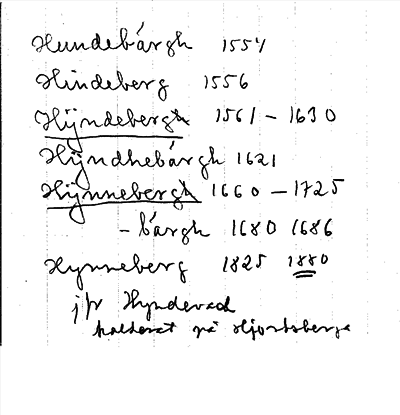 Hundebårgh 1554
Hindeberg 1556
Hÿndebergh 1561 - 1630
Hÿndhebårgh 1621
Hÿnnebergh 1660 - 1725
- bårgh 1680 1686
Hynneberg 1825 1880
jfr Hyndevad
på Hjortsberga